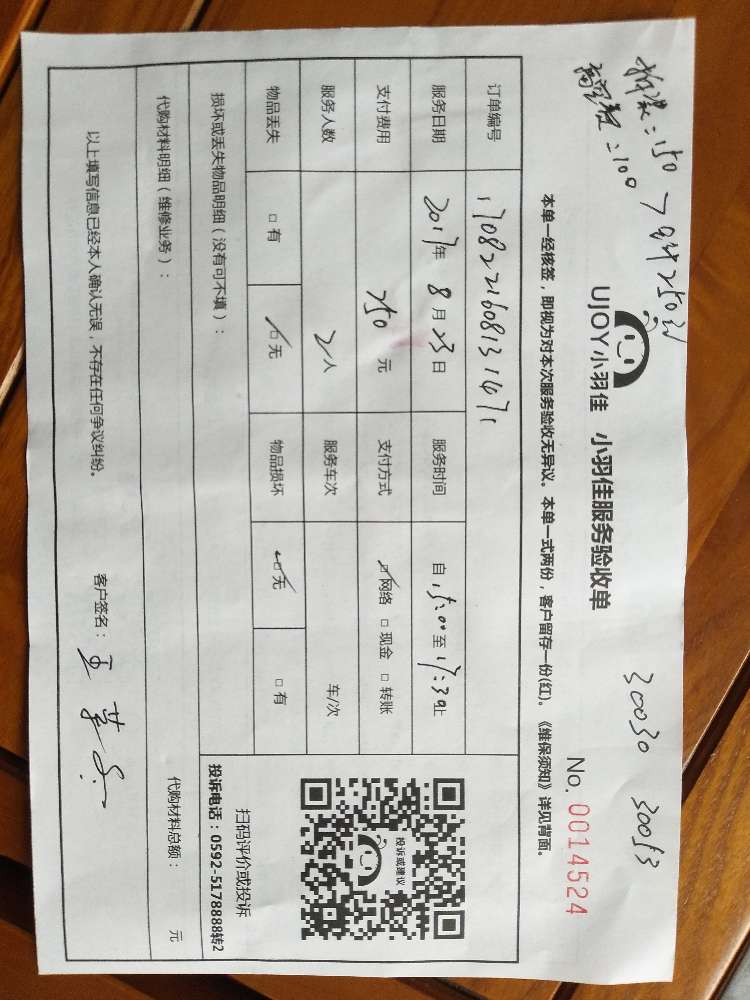 拆装：150
高空费：100
共250元
30030 30053
UJOY小羽佳 小羽佳服务验收单
No. 0014524
本单一经核签，即视为对本次服务验收无异议。本单一式两份，客户留存一份(红)。《维保须知》详见背面。
订单编号 1708221608131471
服务日期 2017年8月23日 服务时间 自15:00至17:30止
支付费用 250元 支付方式 ☑网络 □现金 □转账
服务人数 2人 服务车次 车/次
物品丢失 □有 ☑无 物品损坏 ☑无 □有
损坏或丢失物品明细（没有可不填）：
代购材料明细（维修业务）：
代购材料总额： 元
以上填写信息已经本人确认无误，不存在任何争议纠纷。 客户签名：
投诉或建议
扫码评价或投诉
投诉电话：0592-5178888转2